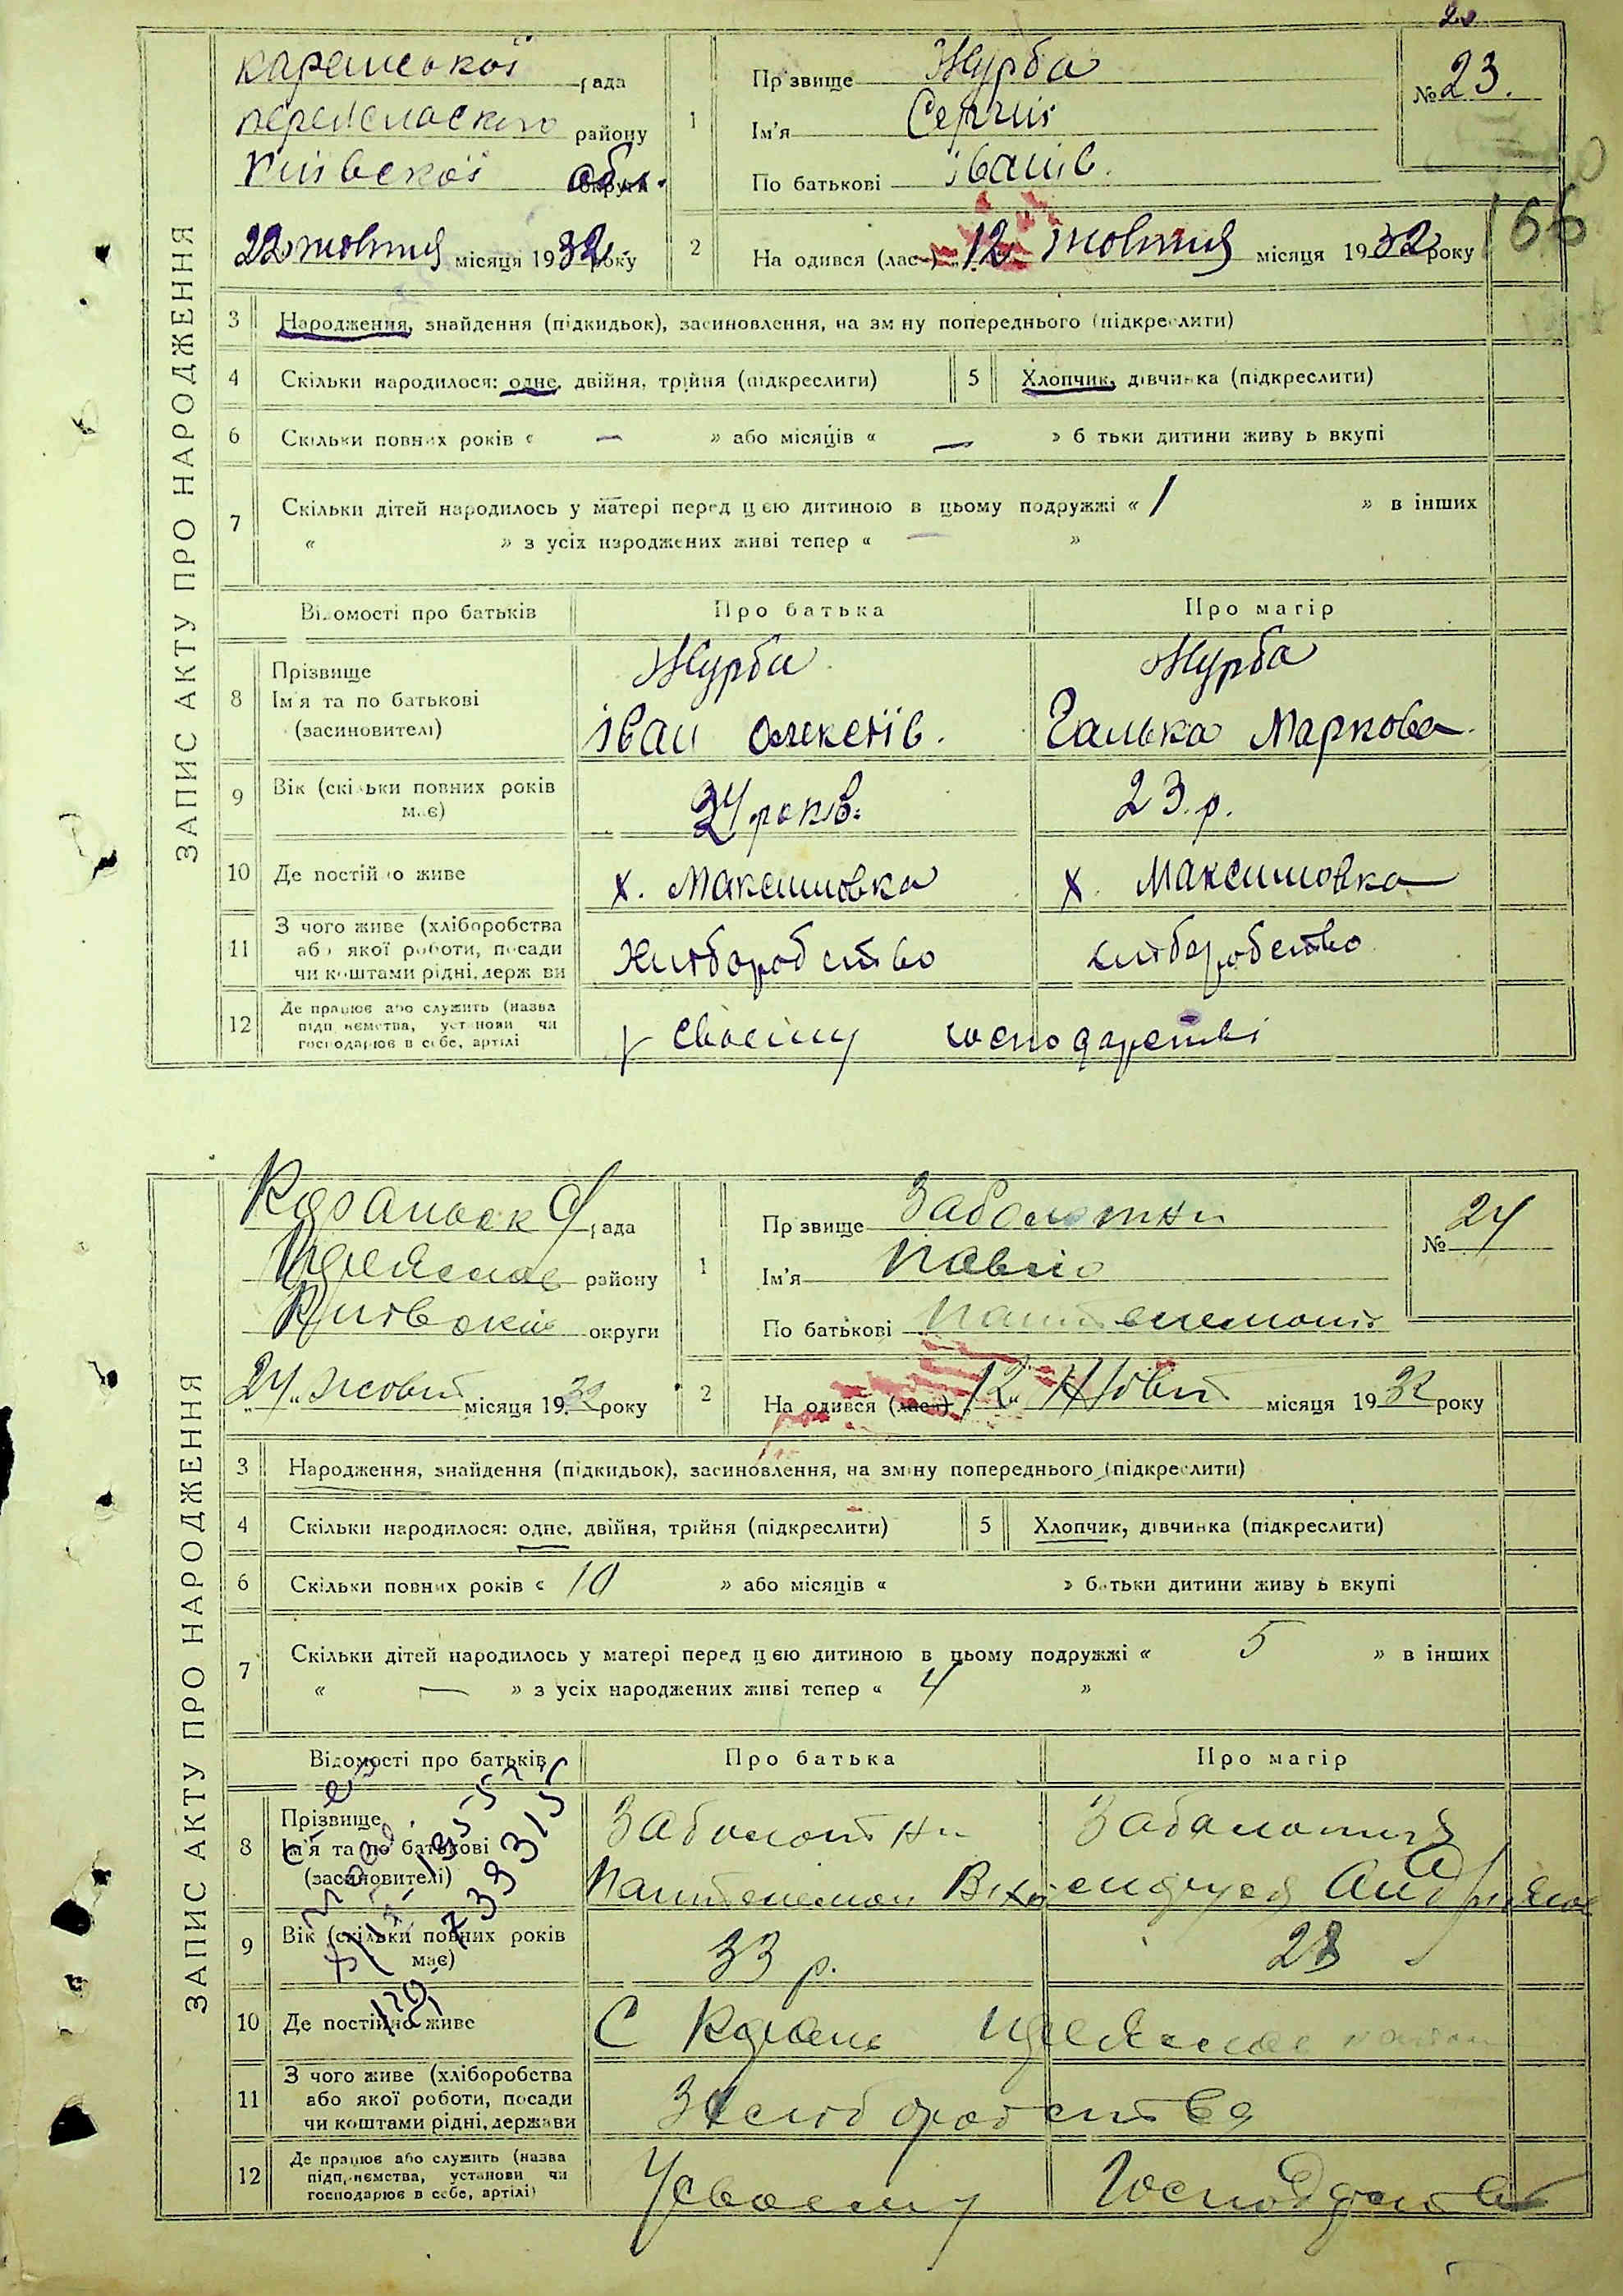 ЗАПИС АКТУ ПРО НАРОДЖЕННЯ
каранської рада
переяславського району
Київської обл.
22 жовтня місяця 1932 року
№ 23.
166
1 Прізвище Журба
Ім'я Сергій
По батькові Іванів.
2 Народився (лась) "12" жовтня місяця 1932 року
3 Народження, знайдення (підкидьок), засиновлення, на зміну попереднього (підкреслити)
4 Скільки народилося: одне, двійня, трійня (підкреслити) 5 Хлопчик, дівчинка (підкреслити)
6 Скільки повних років « — » або місяців « — » батьки дитини живуть вкупі
7 Скільки дітей народилось у матері перед цією дитиною в цьому подружжі « 1 » в інших
« » з усіх народжених живі тепер « — »
Відомості про батьків Про батька Про матір
8 Прізвище Журба Журба
Ім'я та по батькові
(засиновителі) Іван Олексіїв. Галька Маркова
9 Вік (скільки повних років має) 34 років. 23.р.
10 Де постійно живе х. Максимовка х. Максимовка
11 З чого живе (хліборобства
або якої роботи, посади
чи коштами рідні, держави Хліборобство хліборобство
12 Де працює або служить (назва
підприємства, установи чи
господарює в себе, артілі у своєму господарстві
ЗАПИС АКТУ ПРО НАРОДЖЕННЯ
Каранськ рада
Переяслав району
Київської округи
24 жовт місяця 1932 року
№ 24
1 Прізвище Заболотни
Ім'я Павло
По батькові Пантелемонів
2 Народився (лася) "12" Жовт місяця 1932 року
3 Народження, знайдення (підкидьок), засиновлення, на зміну попереднього (підкреслити)
4 Скільки народилося: одне, двійня, трійня (підкреслити) 5 Хлопчик, дівчинка (підкреслити)
6 Скільки повних років « 10 » або місяців « » батьки дитини живуть вкупі
7 Скільки дітей народилось у матері перед цією дитиною в цьому подружжі « 5 » в інших
« — » з усіх народжених живі тепер « 4 »
Відомості про батьків Про батька Про матір
8 Прізвище Заболотни Заболотня
Ім'я та по батькові
(засиновителі) Пантелемон
9 Вік (скільки повних років
має) 33 р. 28
10 Де постійно живе С Карань Переяслав
11 З чого живе (хліборобства
або якої роботи, посади
чи коштами рідні, держави Хліборобства
12 Де працює або служить (назва
підприємства, установи чи
господарює в себе, артілі) У своєму господарстві